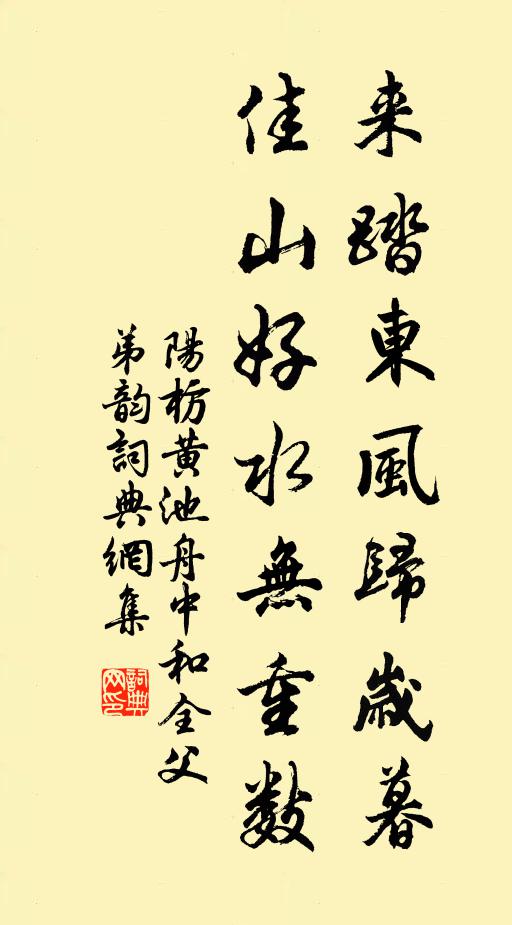 来踏東風歸歲暮
佳山好水無重數
陽枋黃池舟中和全父
弟韵詞典網集
詞典网印